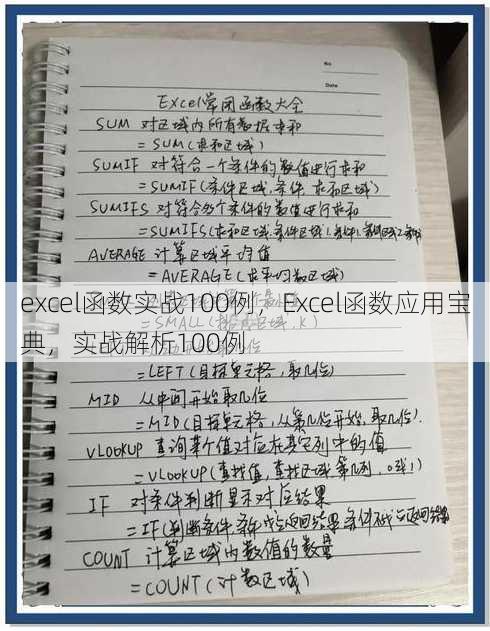 No
Date
Excel常用函数大全
SUM 对区域内所有数据求和
=SUM(求和区域)
SUMIF 对符合一个条件的数值进行求和
=SUMIF(条件区域,条件 求和区域)
SUMIFS 对符合多个条件的数值进行求和
=SUMIFS(求和区域.条件区域1.条件1.条件区域2.条件2
AVERAGE 计算区域平均值
=AVERAGE(求平均数区域)
excel函数实战100例，Excel函数应用宝
典，实战解析100例
=SMALL( K)
=LEFT(目标单元格,取几位)
MID 从中间开始取几位
=MID(目标单元格,从第几位开始,取几位).
VLOOKUP 查询某个值对应在其它列中的值
=VLOOKUP(查找值,查找区域 第几列,0或1)
IF 对条件判断显示对应结果
=IF(判断条件 条件成立返回结果 条件不成立返回结果
COUNT 计算区域内数值的数量
=COUNT(计数区域)